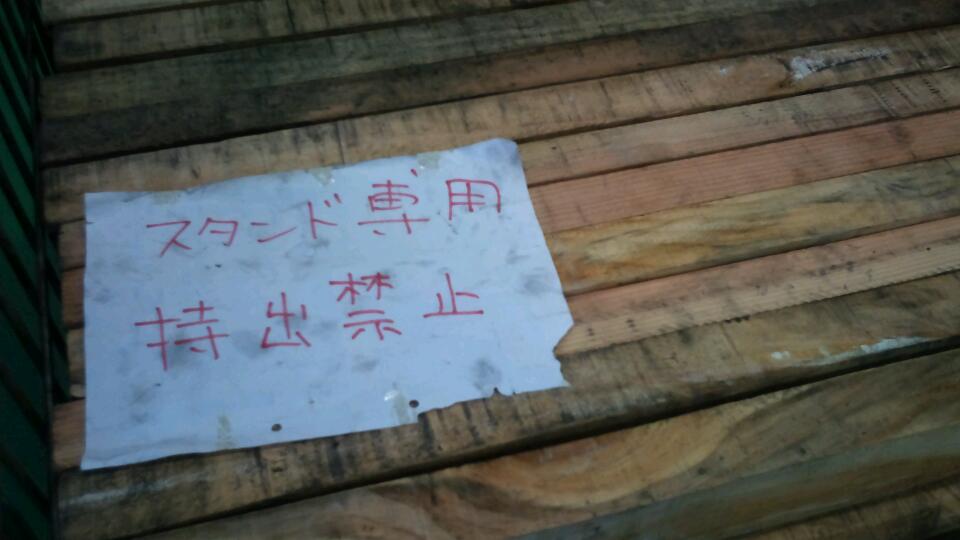 スタンド専用
持出禁止